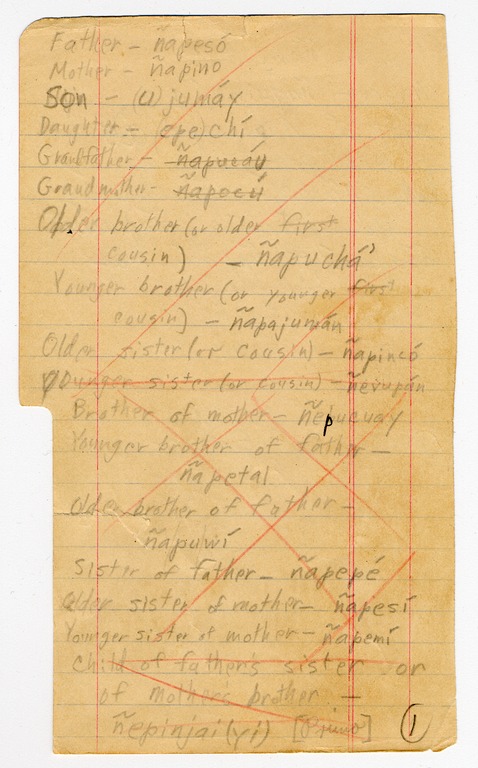 Father - ñapesó
Mother - ñapino
Son - (u) jumáy
Daughter - (epe) chí
Grandfather - ñapucáu
Grandmother - ñapocú
Older brother (or older first
cousin) - ñapuchá'
Younger brother (or younger first
cousin) - ñapajumán
Older sister (or cousin) - ñapincó
Younger sister (or cousin) - ñevupán
Brother of mother - ñepucuay
Younger brother of father -
ñapetal
Older brother of father -
ñapuwí
Sister of father - ñapepé
Older sister of mother - ñapesí
Younger sister of mother - ñapemí
Child of father's sister or
of mothers brother -
ñepinjai (yi) [Primo]
1